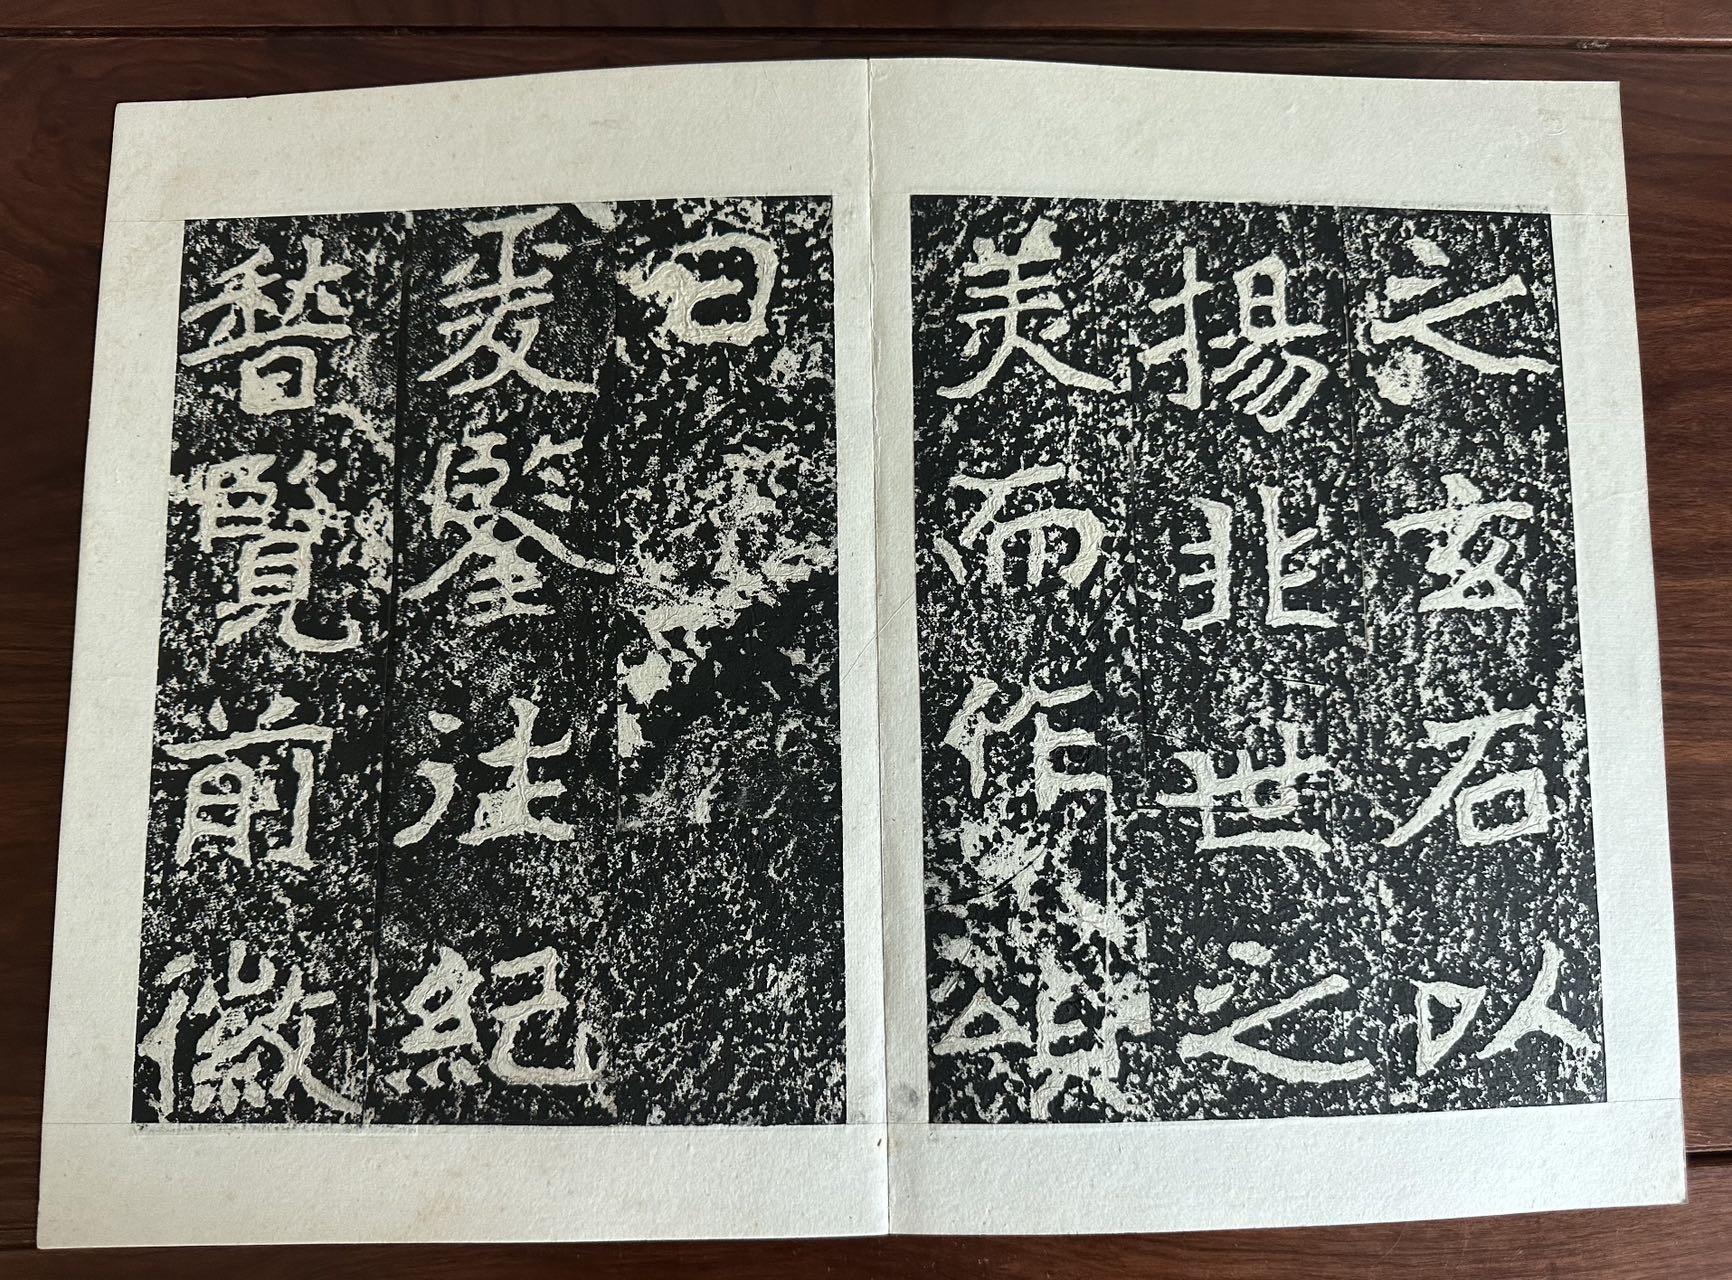 之玄石以
揚非世之
美而作頌
曰
爰鑒往紀
稽覽前徽